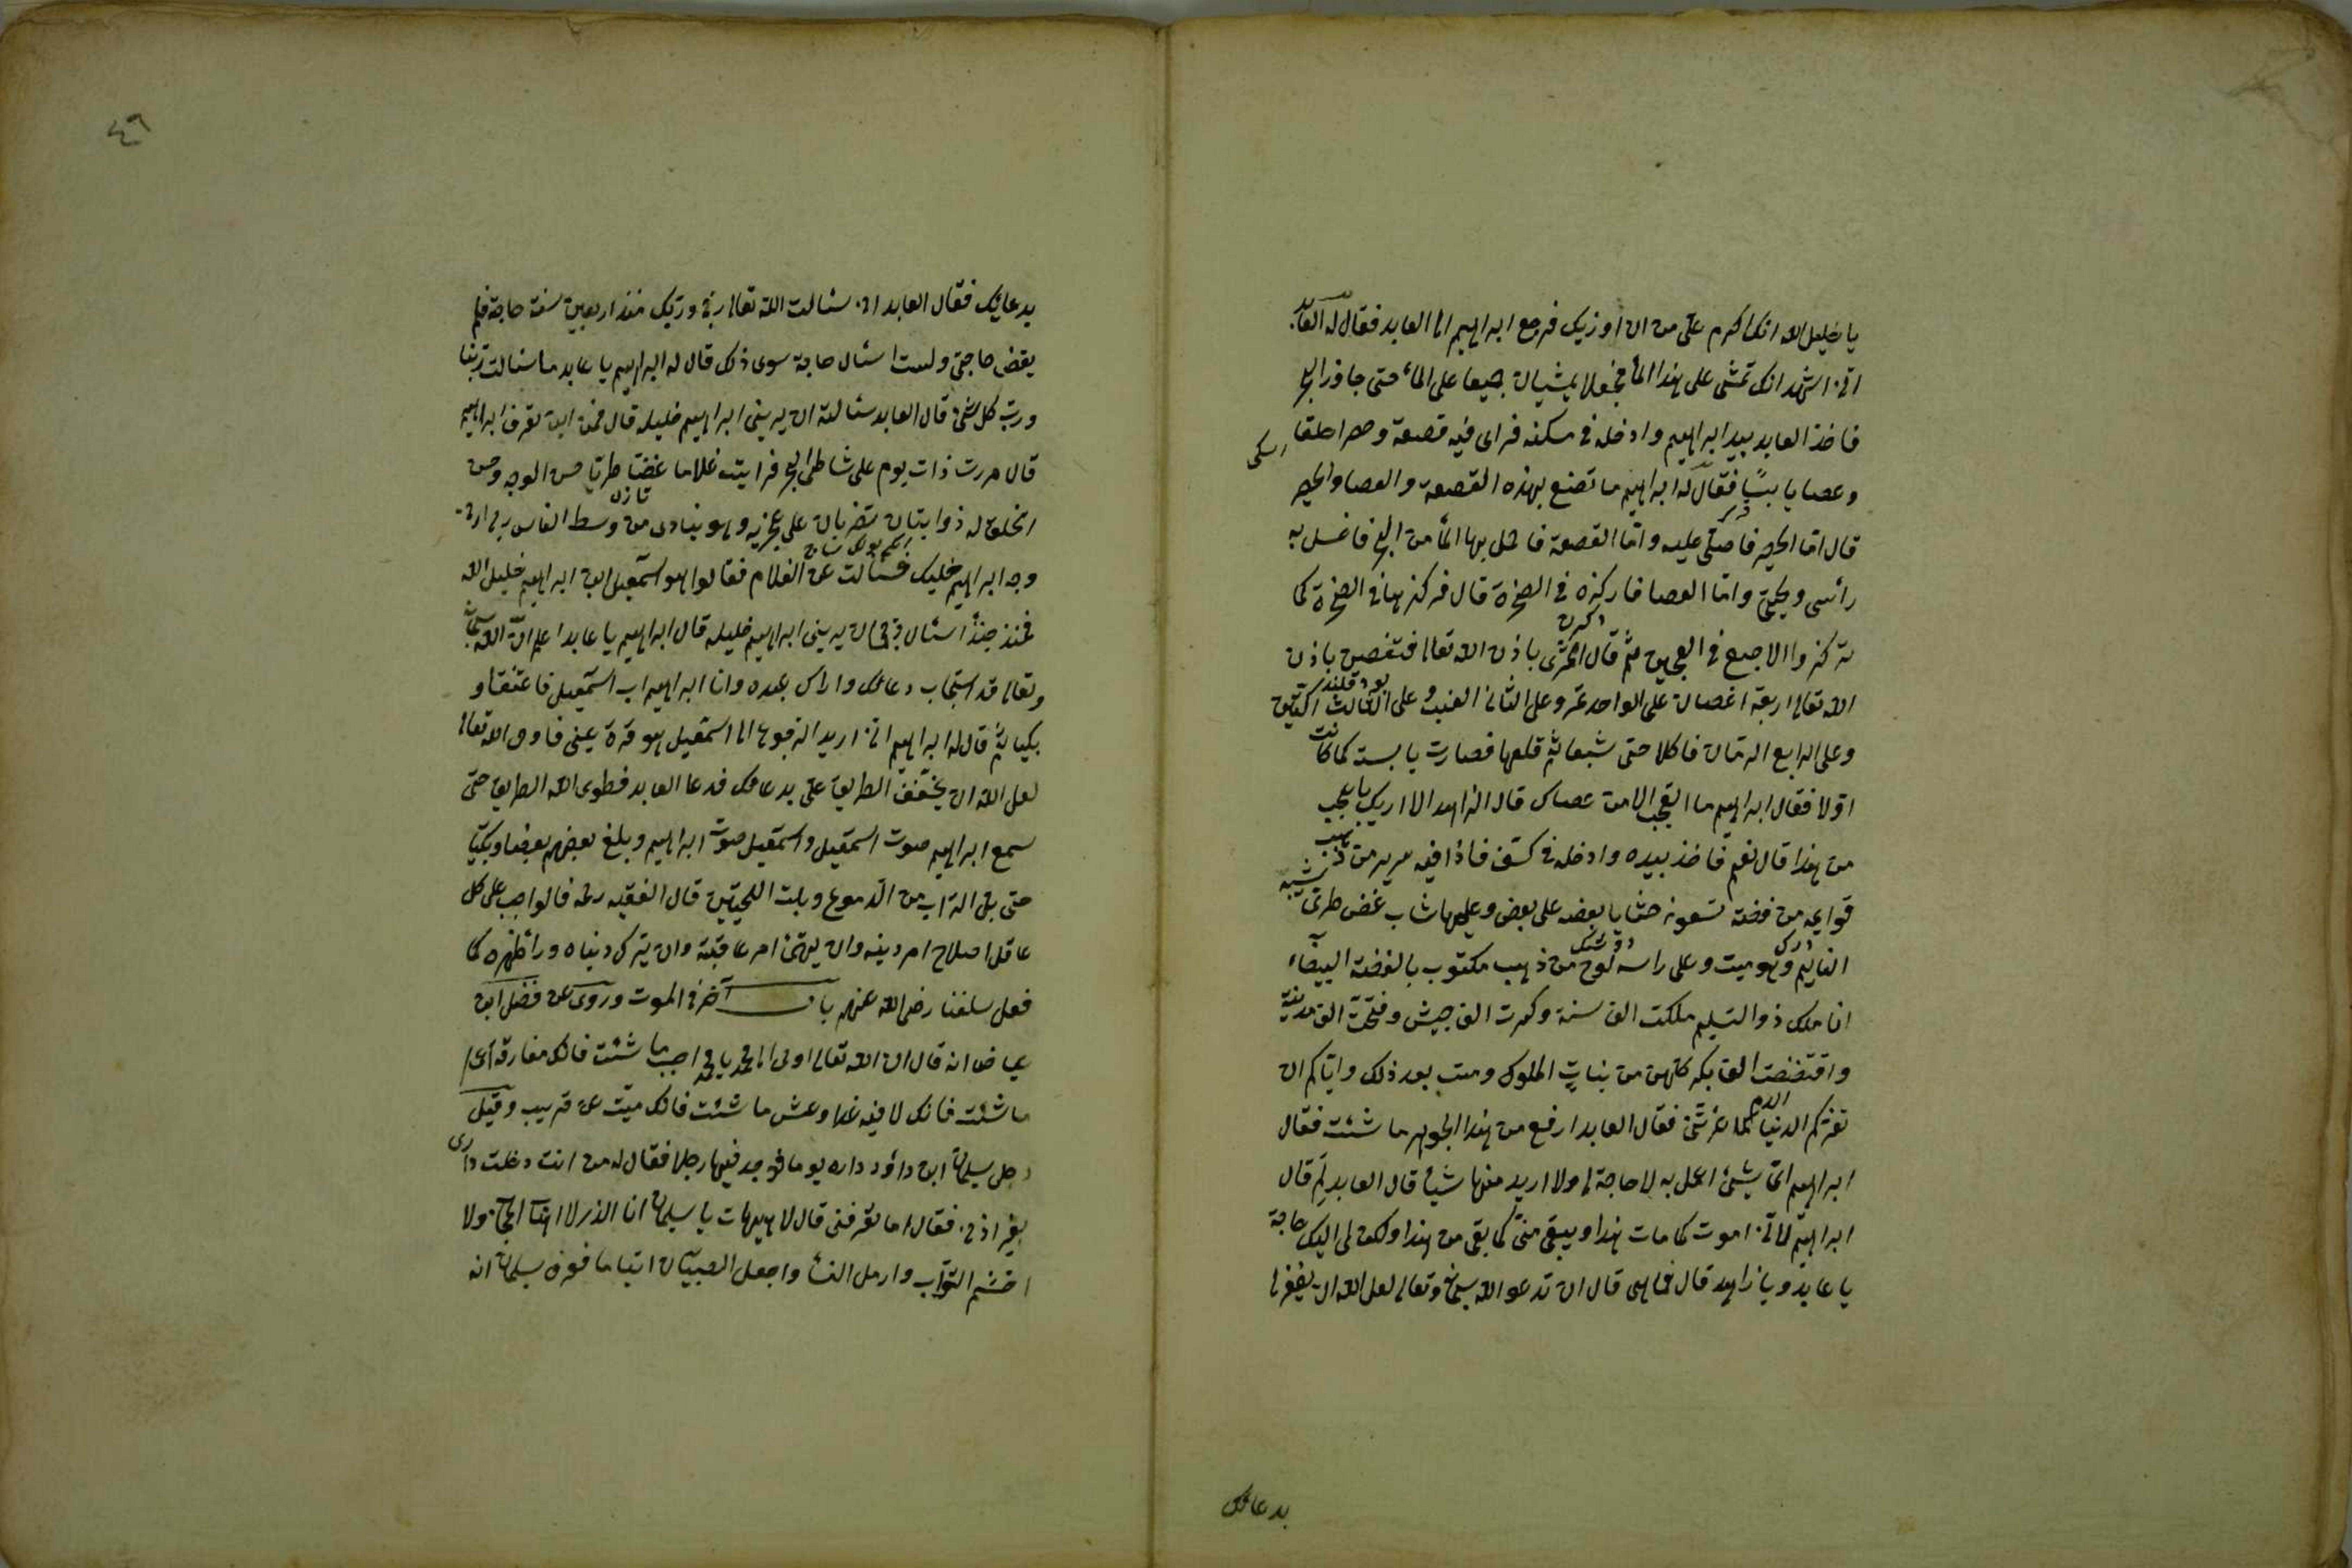 يا خليل الله انك اكرم علىّ من ان اوذيك فرجع ابراهيم الى العابد فقال له العابد
انى اشهد انك تمشى على هذا الماء فجعلا يمشيان جميعا على الماء حتى جاوز البحر
فاخذ العابد بيد ابراهيم وادخله فى مسكنه فراى فيه قصعة وحصرا خلقا
اسكى
وعصا يابسًا فقال له ابراهيم ما تصنع بهذه القصعة والعصا والحصر
قال امّا الحصر فاصلّى عليه وامّا القصعة فاحمل بها الماء من البحر فاغسل به
رأسى ولحيتى وامّا العصا فاركزه فى الصخرة قال فركزها فى الصخرة كما
تركزوا الاصبع فى العجين ثم قال اثمرى باذن الله تعالى فتغصن باذن
الله تعالى اربعة اغصان على الواحد تمر وعلى الثانى العنب وعلى الثالث التين
وعلى الرابع الرمان فاكلا حتى شبعا ثم قلعها فصارت يابست كما كانت
اولا فقال ابراهيم ما العجب الا من عصاك قال الزاهد الا اريك باعجب
من هذا قال نعم فاخذ بيده وادخله فى كنف فاذا فيه سرير من ذهب
قوايمه من فضة تسعون حشايا بعضه على بعض وعليها شاب غضّ طرىّ
شبه
النايم وهو ميت وعلى راسه لوح من ذهب مكتوب بالفضة البيضاء
انا ملك ذو التسليم ملكت الف سنة وكسرت الف جيش وفتحت الف مدينة
واقتضضت الف بكر كلهن من بنات الملوك ومت بعد ذلك واياكم ان
تغرّكم الدنيا كما غرتنى فقال العابد ارفع من هذا الجوهر ما شئت فقال
ابراهيم اىّ شئ اعمل به لا حاجة لى ولا اريد منها شيأ قال العابد لِمَ قال
ابراهيم لانى اموت كما مات هذا ويبقى منى كما بقى من هذا ولكن لى اليك حاجة
يا عابد ويا زاهد قال فما هى قال ان تدعو الله سبحانه وتعالى لعل الله ان يغفر لى
بدعائك
٤٦
بدعائك فقال العابد انى سئالت الله تعالى ربى وربك منذ اربعين سنة حاجة فلم
يقض حاجتى ولست اسئال حاجة سوى ذلك قال له ابراهيم يا عابد ما سئالت ربنا
وربّ كل شئ قال العابد سئالته ان يرينى ابراهيم خليله قال فمن اين تعرف ابراهيم
قال مررت ذات يوم على شاطى البحر فرايت غلاما غضًّا طريّا حسن الوجه وحسن
تازه
الخلق له ذوابتان تضربان على عجزيه وهو ينادى من وسط الناس رب ارنى
وجه ابراهيم خليلك فسئالت عن الغلام فقالوا هو اسمعيل ابن ابراهيم خليل الله
فمنذ حينئذ اسئال ربى ان يرينى ابراهيم خليله قال ابراهيم يا عابد اعلم انّ الله سبحانه
وتعالى قد استجاب دعائك واراك عبده وانا ابراهيم اب اسمعيل فاعتنقا و
بكيا ثم قال له ابراهيم انى اريد الرجوع الى اسمعيل هو قرة عينى فادع الله تعالى
لعل الله ان يخفف الطريق علىّ بدعائك فدعا العابد فطوى الله الطريق حتى
سمع ابراهيم صوت اسمعيل واسمعيل صوت ابراهيم وبلغ بعضهم بعضا وبكيا
حتى بلّ التراب من الدموع وبلت اللحيتين قال الفقيه رحمه فالواجب على كل
عاقل اصلاح امر دينه وان يهتمّ امر عاقبته وان يترك دنياه وراء ظهره كما
فعل سلفنا رضى الله عنهم باب آخر فى الموت وروى عن فضل ابن
عياض انه قال ان الله تعالى اوحى الى محمد يا محمد احبب ما شئت فانك مفارقه اعمل
ما شئت فانك لاقيه غدا وعش ما شئت فانك ميّت عن قريب وقيل
دخل سليمان ابن داؤد داره يوما فوجد فيها رجلا فقال له من انت دخلت دارى
بغير اذنى فقال اما تعرفنى قال لا هيهات يا سليمان انا الذى لا اهاب الحجاب ولا
احتشم البوّاب وارمل النساء واجعل الصبيان ايتاما فعرف سليمان انه